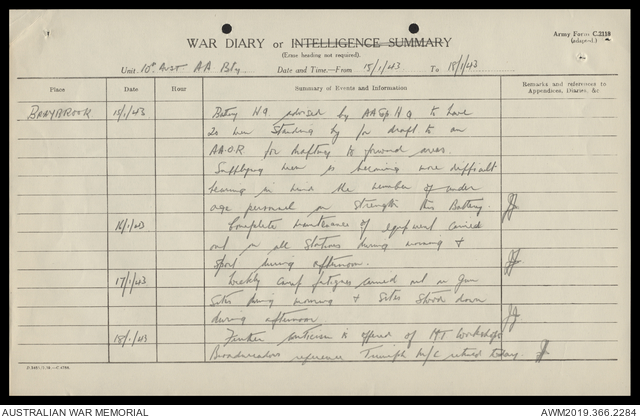 Army Form C.2118
(adapted.)
WAR DIARY or INTELLIGENCE SUMMARY
(Erase heading not required).
Unit 10th Aust. A A Bty. Date and Time—From 15/1/43 To 18/1/43
Place Date Hour Summary of Events and Information Remarks and references to Appendices, Diaries, &c
BRAYBROOK 15/1/43 Battery HQ advised by AA Gp HQ to have
20 men standing by for draft to an
AA.O.R. for drafting to forward areas.
Supplying men is becoming more difficult
bearing in mind the number of under
age personnel on strength this Battery.
16/1/43 Complete maintenance of equipment carried
out on all Stations during morning &
sport during afternoon.
17/1/43 Weekly camp fatigues carried out on Gun
Sites during morning & Sites stood down
during afternoon
18/1/43 Further criticism is offered of MT Workshops
Broadmeadows reference Triumph M/C retired today.
AUSTRALIAN WAR MEMORIAL
AWM2019.366.2284